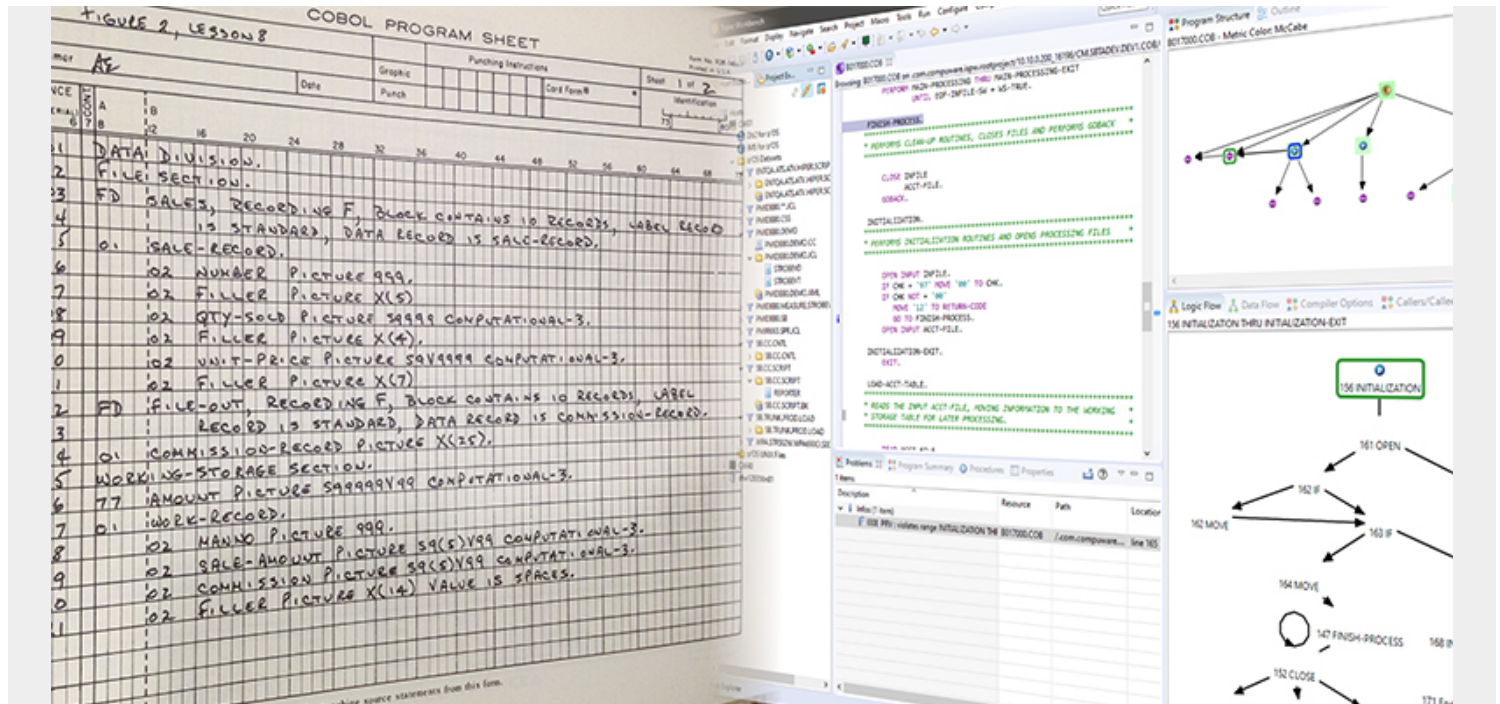 FIGURE 2, LESSON 8
COBOL PROGRAM SHEET
Punching Instructions
Graphic
Card Form#
Sheet 1 of 2
Date
Punch
Identification
A
B
12 16 20 24 28 32 36 40 44 48 52 56 60 64 68
DATA DIVISION.
FILE SECTION.
FD SALES, RECORDING F, BLOCK CONTAINS 10 RECORDS, LABEL RECORD
IS STANDARD, DATA RECORD IS SALE-RECORD.
01 SALE-RECORD.
02 NUMBER PICTURE 999.
02 FILLER PICTURE X(5)
02 QTY-SOLD PICTURE S9999 COMPUTATIONAL-3.
02 FILLER PICTURE X(4).
02 UNIT-PRICE PICTURE S9V9999 COMPUTATIONAL-3.
02 FILLER PICTURE X(7)
FD FILE-OUT, RECORDING F, BLOCK CONTAINS 10 RECORDS, LABEL
RECORD IS STANDARD, DATA RECORD IS COMMISSION-RECORD.
01 COMMISSION-RECORD PICTURE X(25).
WORKING-STORAGE SECTION.
77 AMOUNT PICTURE S99999V99 COMPUTATIONAL-3.
01 WORK-RECORD.
02 MANNO PICTURE 999.
02 SALE-AMOUNT PICTURE S9(5)V99 COMPUTATIONAL-3.
02 COMMISSION PICTURE S9(5)V99 COMPUTATIONAL-3.
02 FILLER PICTURE X(14) VALUE IS SPACES.
source statements from this form.
Format Display Navigate Search Project Macro Tools Run Configure
B017000.COB
PERFORM MAIN-PROCESSING THRU MAIN-PROCESSING-EXIT
UNTIL EOF-INFILE-SW = WS-TRUE.
FINISH-PROCESS.
* PERFORMS CLEAN-UP ROUTINES, CLOSES FILES AND PERFORMS GOBACK *
CLOSE INFILE
ACCT-FILE.
GOBACK.
INITIALIZATION.
* PERFORMS INITIALIZATION ROUTINES AND OPENS PROCESSING FILES *
OPEN INPUT INFILE.
IF CHK = '97' MOVE '00' TO CHK.
IF CHK NOT = '00'
MOVE '12' TO RETURN-CODE
GO TO FINISH-PROCESS.
OPEN INPUT ACCT-FILE.
INITIALIZATION-EXIT.
EXIT.
LOAD-ACCT-TABLE.
* READS THE INPUT ACCT-FILE, MOVING INFORMATION TO THE WORKING *
* STORAGE TABLE FOR LATER PROCESSING. *
Problems Program Summary Procedures Properties
1 items
Description Resource Path Location
Infos (1 item)
violates range INITIALIZATION B017000.COB /.com.compuware... line 165
Program Structure Outline
B017000.COB - Metric Color: McCabe
Logic Flow Data Flow Compiler Options Callers/Calle
156 INITIALIZATION THRU INITIALIZATION-EXIT
156 INITIALIZATION
161 OPEN
162 IF
162 MOVE
163 IF
164 MOVE
147 FINISH-PROCESS
152 CLOSE